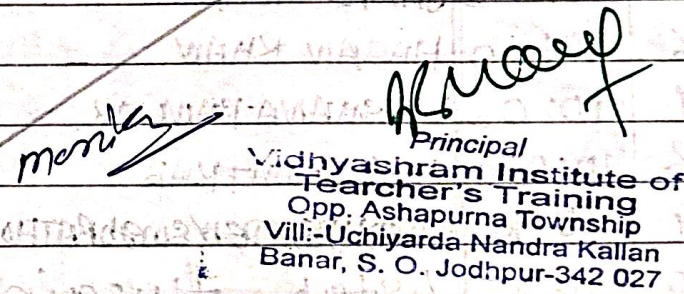 Monika
Principal
Vidhyashram Institute of
Tearcher's Training
Opp. Ashapurna Township
Vill:-Uchiyarda-Nandra Kallan
Banar, S. O. Jodhpur-342 027